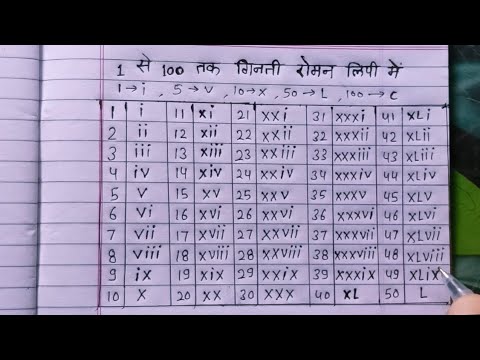 1 से 100 तक गिनती रोमन लिपि में
1→i , 5→V , 10→X , 50→L , 100→C
1 i 11 xi 21 xxi 31 xxxi 41 XLi
2 ii 12 xii 22 xxii 32 xxxii 42 XLii
3 iii 13 xiii 23 xxiii 33 xxxiii 43 XLiii
4 iv 14 xiv 24 xxiv 34 xxxiv 44 XLiv
5 v 15 xv 25 xxv 35 xxxv 45 XLv
6 vi 16 xvi 26 xxvi 36 xxxvi 46 XLvi
7 vii 17 xvii 27 xxvii 37 xxxvii 47 XLvii
8 viii 18 xviii 28 xxviii 38 xxxviii 48 XLviii
9 ix 19 xix 29 xxix 39 xxxix 49 XLix
10 X 20 XX 30 XXX 40 XL 50 L